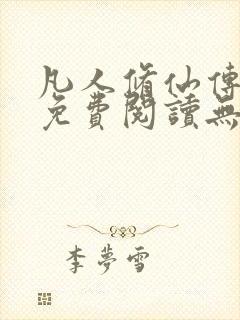 凡人脩仙傳
免費閱讀無
李夢雪